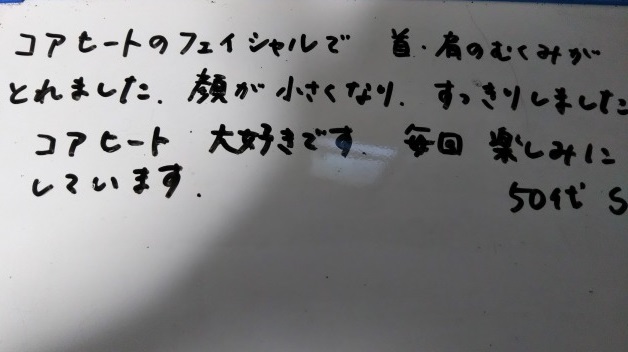 コアヒートのフェイシャルで 首・肩のむくみが
とれました. 顔が小さくなり. すっきりしました
コアヒート 大好きです. 毎回 楽しみに
しています.
50代 S